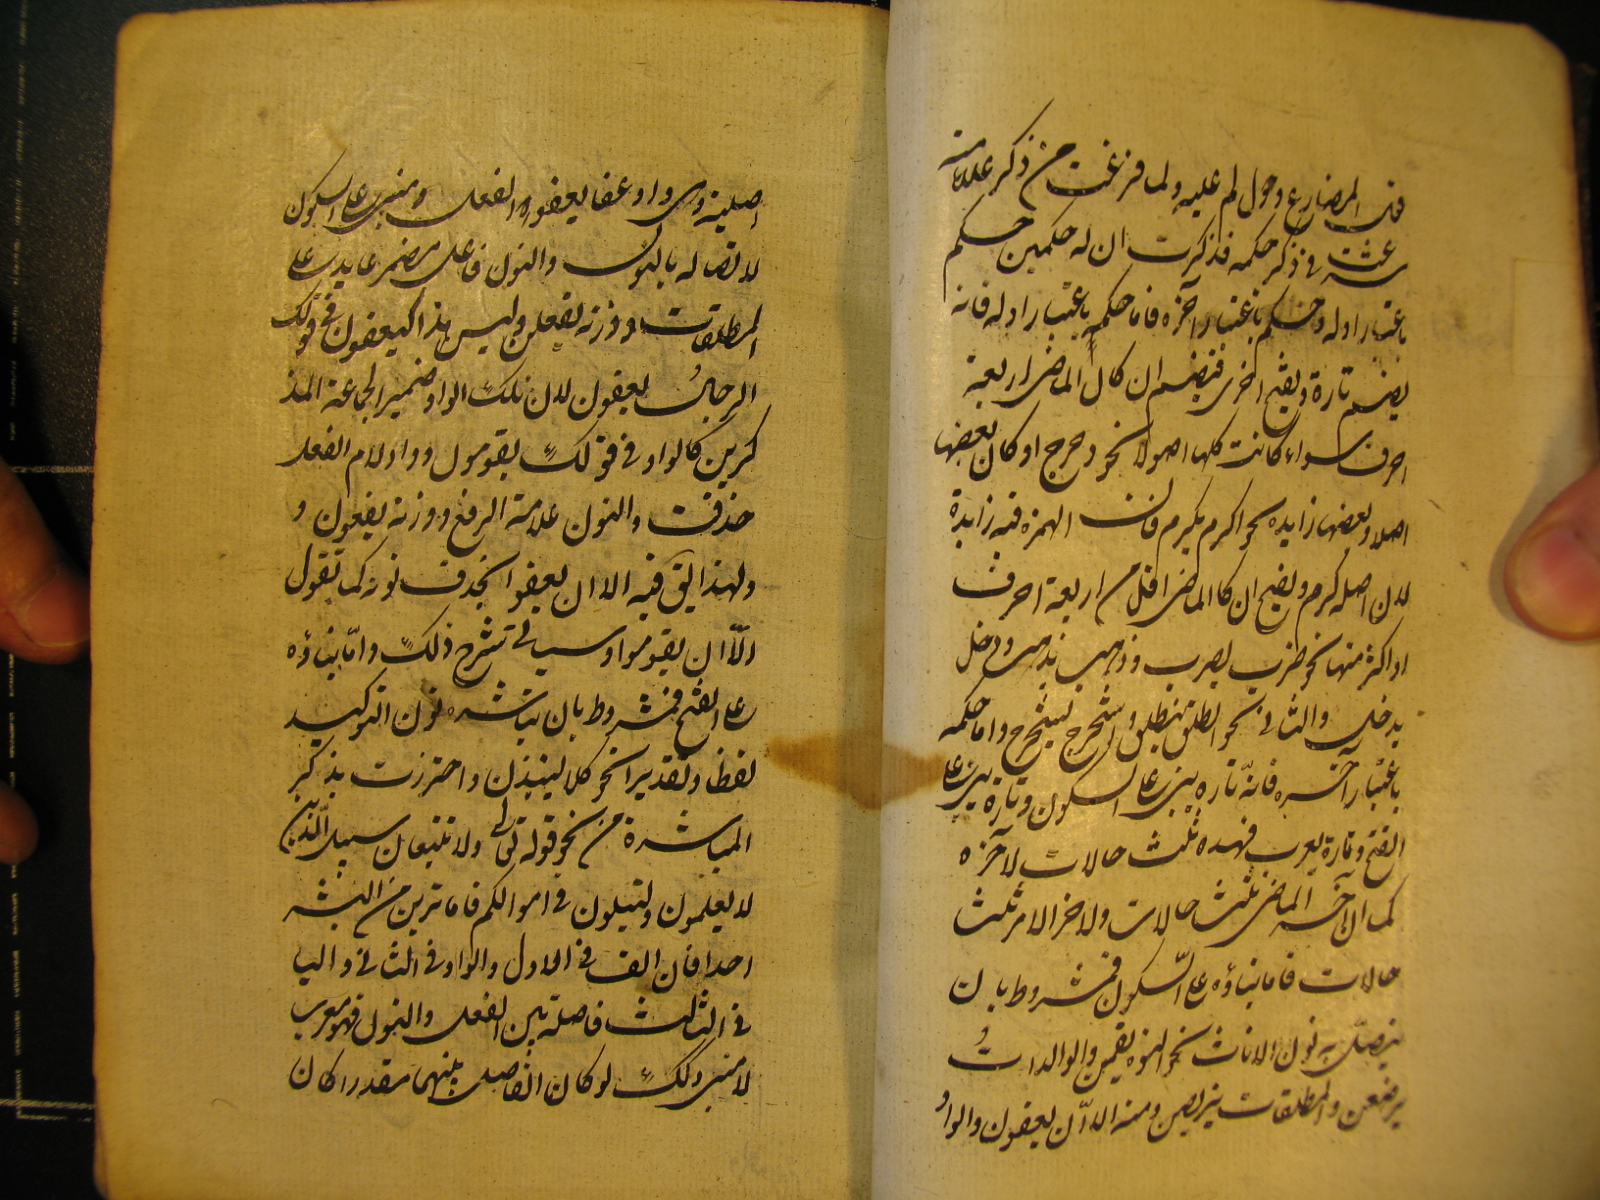 فى المضارع دخول لم عليه ولما فرغت من ذكر علامته
شرعت فى ذكر حكمه فذكرت ان له حكمين حكم
باعتبار اوله وحكم باعتبار آخره فاما حكمه باعتبار اوله فانه
يضم تارة ويفتح اخرى فيضم ان كان الماضى اربعة
احرف سواء كانت كلها اصولا نحو دحرج او كان بعضها
اصلا وبعضها زايده نحو اكرم يكرم فان الهمزه فيه زايدة
لان اصله كرم ويفتح ان كا الماضى اقل من اربعة احرف
او اكثر منها نحو ضرب يضرب وذهب يذهب ودخل
يدخل والثانى نحو انطلق ينطلق واستخرج يستخرج واما حكمه
باعتبار آخره فانّه تاره يبنى على السكون وتارة يبنى على
الفتح وتارة يعرب فهذه ثلث حالات لآخره
كما ان لآخر الماضى ثلث حالات ولاخر الامر ثلث
حالات فاما بناؤه على السّكون فمشروط بان
يتصل به نون الاناث نحو النسوة يقمن والوالداتُ
يرضعن والمطلقات يتربصن ومنه الا اّن يعفون والواو
اصلية وهى واو عفا يعفو والفعل مبنى على السكون
لاتصاله بالنون والنون فاعل مضمر عايد على
المطلقات ووزنه يفعلن وليس هذا كيعفون فى قولك
الرجالُ يعفون لان تلك الواو ضمير الجماعة المذ
كرين كالواو فى قولك يقومون وواو لام الفعل
حذفت والنون علامة الرفع ووزنه يفعون و
ولهذا يق فيه الا ان يعفوا بحذف نونه كما تقول
الّا ان يقوموا وسياتى شرح ذلك وامّا بناؤه
على الفتح فمشروط بان تباشره نون التوكيد
لفظا وتقديرا نحو كلا لينبذن واحترزت بذكر
المباشرة من نحو قوله تعالى ولا تتبعان سبيل الّذين
لا يعلمون ولتبلون فى اموالكم فاما ترين من البشر
احدا فان الف فى الاول والواو فى الثانى واليا
فى الثالث فاصلة بين الفعل والنون فهو معرب
لا مبنى وكك لو كان الفاصل بينهما مقدرا كان